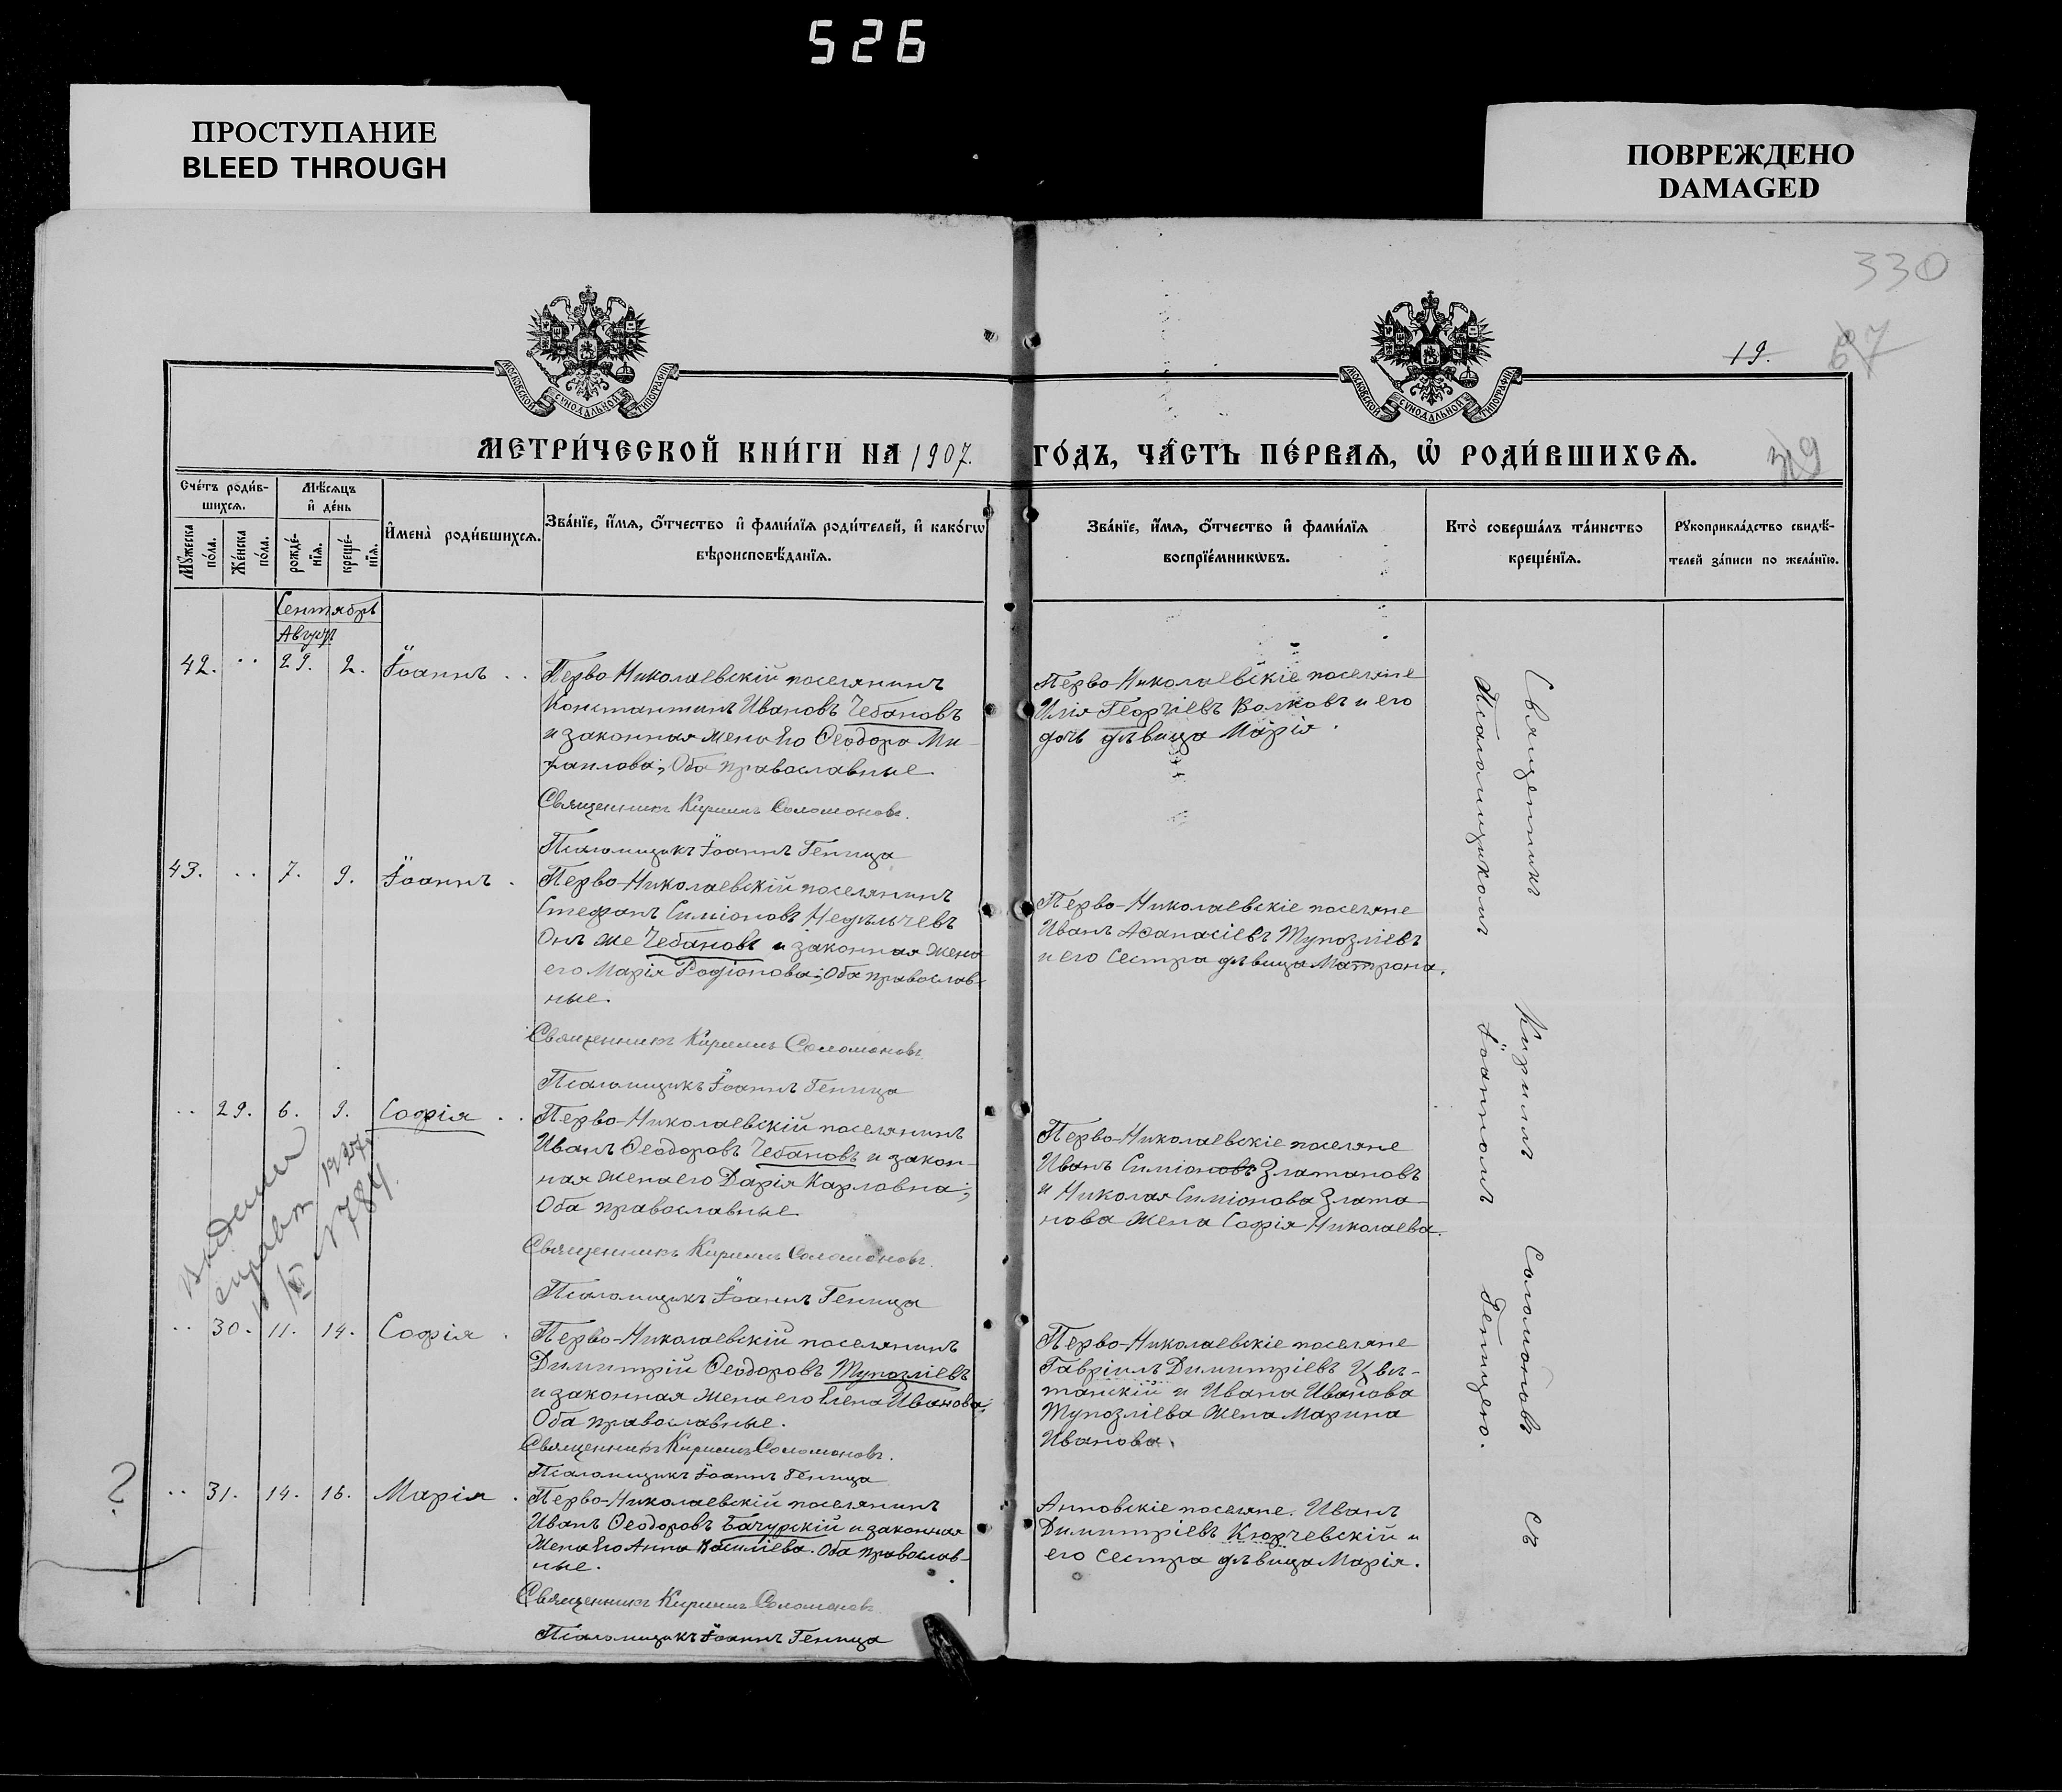 526
ПРОСТУПАНИЕ
BLEED THROUGH
ПОВРЕЖДЕНО
DAMAGED
330
19.
МОСКОВСКОЙ СѴНОДАЛЬНОЙ ТИПОГРАФІИ
МОСКОВСКОЙ СѴНОДАЛЬНОЙ ТИПОГРАФІИ
МЕТРИ́ЧЕСКОЙ КНИ́ГИ НА 1907. ГО́ДЪ, ЧА́СТЬ ПЕ́РВАѦ, Ѡ҆ РОДИ́ВШИХСѦ.
Сче́тъ роди́вшихсѧ.
Мꙋ́жеска по́ла.
Же́нска по́ла.
Мѣ́сѧцъ и҆ де́нь
рожде́нїѧ.
креще́нїѧ.
И҆мена̀ роди́вшихсѧ.
Зва́нїе, и҆́мѧ, ѻ҆́тчество и҆ фами́лїѧ роди́телей, и҆ како́гѡ
вѣроисповѣ́данїѧ.
Зва́нїе, и҆́мѧ, ѻ҆́тчество и҆ фами́лїѧ
воспрїе́мникѡвъ.
Кто̀ соверша́лъ та́инство
креще́нїѧ.
Рꙋкоприкла́дство свидѣ́-
телей за́писи по жела́нїю.
Сентябрь
Августъ
42. .. 29. 2. Іоаннъ ..
Перво-Николаевскій поселянинъ
Константинъ Ивановъ Чебановъ
и законная жена его Ѳеодора Ми-
хаилова; Оба православные.
Священникъ Кириллъ Соломоновъ.
Псаломщикъ Іоаннъ Геница
Перво-Николаевскіе поселяне
Илія Георгіевъ Волковъ и его
дочь дѣвица Марія.
43. .. 7. 9. Іоаннъ .
Перво-Николаевскій поселянинъ
Стефанъ Симіоновъ Недѣльчевъ
Онъ же Чебановъ и законная жена
его Марія Родіонова; Оба православ-
ные.
Священникъ Кириллъ Соломоновъ
Псаломщикъ Іоаннъ Геница
Перво-Николаевскіе поселяне
Иванъ Аѳанасіевъ Тупозліевъ
и его сестра дѣвица Матрона.
.. 29. 6. 9. Софія ..
Перво-Николаевскій поселянинъ
Иванъ Ѳеодоровъ Чебановъ и закон-
ная жена его Дарія Карловна;
Оба православные.
Священникъ Кириллъ Соломоновъ.
Псаломщикъ Іоаннъ Геница
Перво-Николаевскіе поселяне
Иванъ Симіоновъ Златановъ
и Николая Симіонова Злата-
нова жена Софія Николаева.
1927
N 784.
.. 30. 11. 14. Софія .
Перво-Николаевскій поселянинъ
Димитрій Ѳеодоровъ Тупозліевъ
и законная жена его Елена Иванова;
Оба православные.
Священникъ Кириллъ Соломоновъ.
Псаломщикъ Іоаннъ Геница
Перво-Николаевскіе поселяне
Гавріилъ Димитріевъ Цвѣ-
танскій и Ивана Иванова
Тупозліева жена Марина
Иванова.
?
.. 31. 14. 16. Марія .
Перво-Николаевскій поселянинъ
Иванъ Ѳеодоровъ Бачурскій и законная
жена его Анна Василіева. Оба православ-
ные.
Священникъ Кириллъ Соломоновъ
Псаломщикъ Іоаннъ Геница
Анновскіе поселяне. Иванъ
Димитріевъ Кюрчевскій и
его сестра дѣвица Марія.
Священникъ Кириллъ Соломоновъ съ
Псаломщикомъ Іоанномъ Геницею.